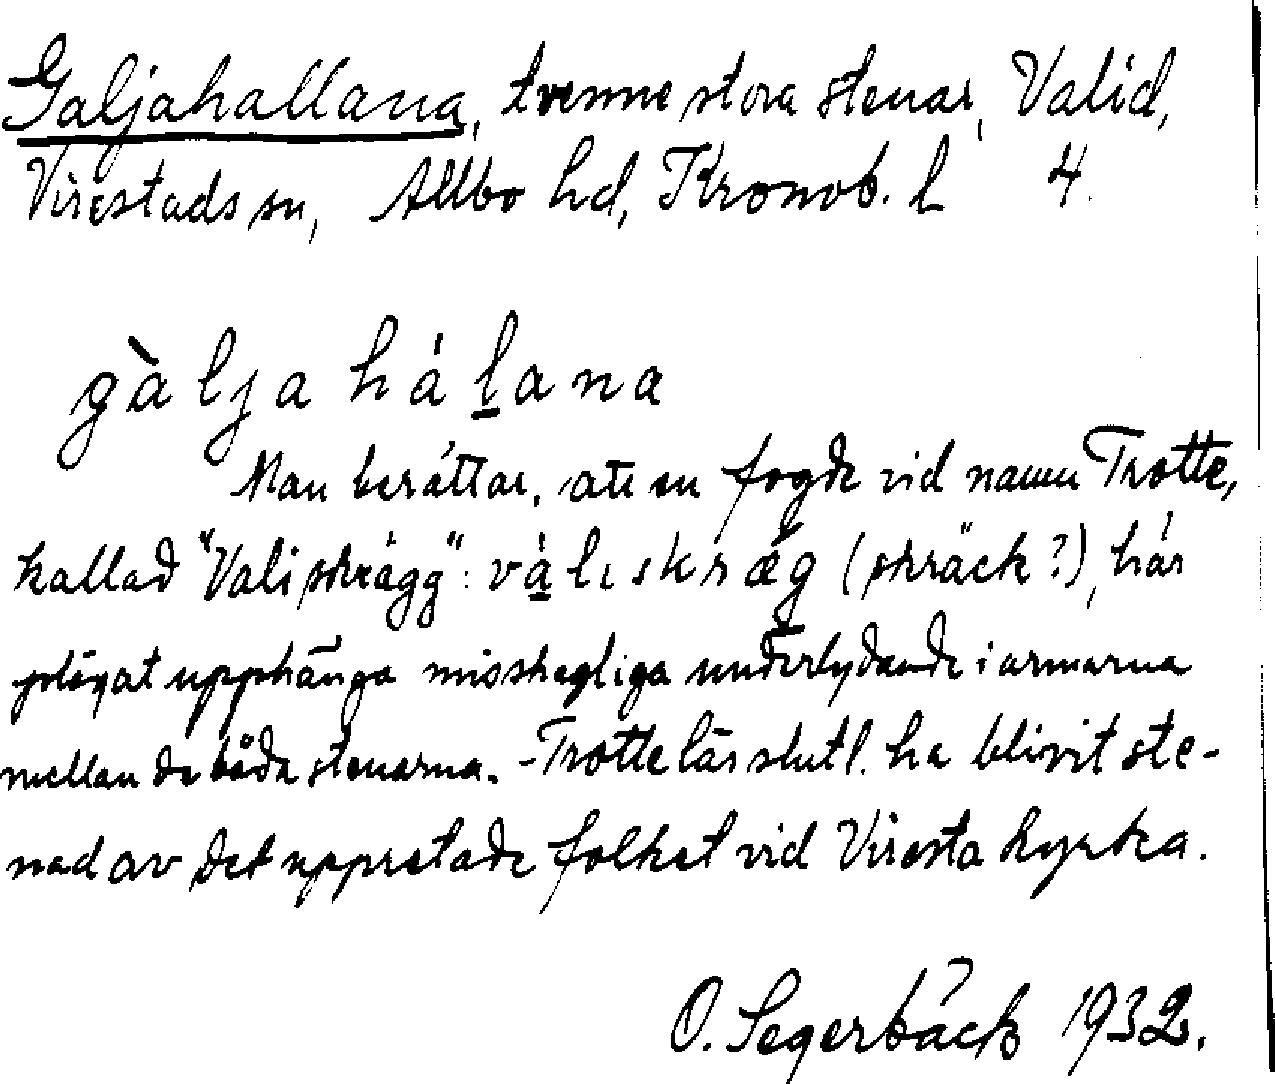 Galjahallana, tvenne stora stenar, Valid,
Virestads sn, Allbo hd, Kronob. l 4.
gàljahálana
Man berättar, att en fogde vid namn Trotte,
kallad "Valiskrägg": vàlıskræg (skräck?), här
plägat upphänga misshagliga underlydande i armarna
mellan de båda stenarna. - Trotte lär slutl. ha blivit ste-
nad av det uppretade folket vid Viresta kyrka.
O. Segerbäck 1932.